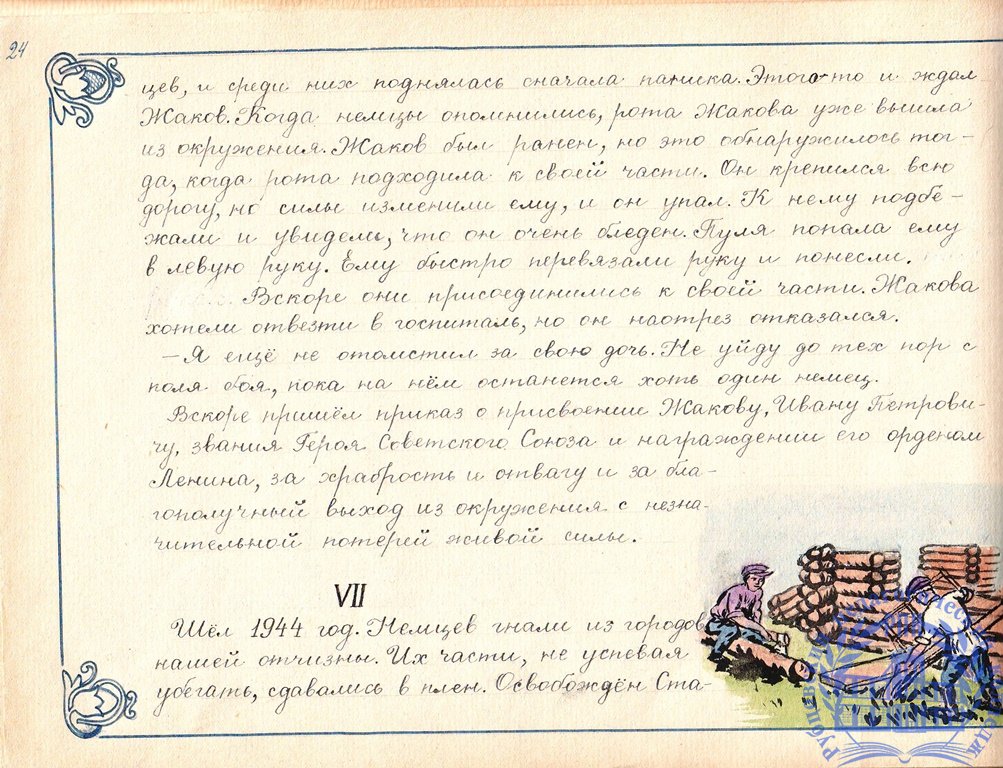 24
цев, и среди них поднялась сначала паника. Этого-то и ждал
Жаков. Когда немцы опомнились, рота Жакова уже вышла
из окружения. Жаков был ранен, но это обнаружилось тог-
да, когда рота подходила к своей части. Он крепился всю
дорогу, но силы изменили ему, и он упал. К нему подбе-
жали и увидели, что он очень бледен. Пуля попала ему
в левую руку. Ему быстро перевязали руку и понесли.
Вскоре они присоединились к своей части. Жакова
хотели отвезти в госпиталь, но он наотрез отказался.
— Я ещё не отомстил за свою дочь. Не уйду до тех пор с
поля боя, пока на нём останется хоть один немец.
Вскоре пришёл приказ о присвоении Жакову, Ивану Петрови-
чу, звания Героя Советского Союза и награждении его орденом
Ленина, за храбрость и отвагу и за бла-
гополучный выход из окружения с незна-
чительной потерей живой силы.
VII
Шёл 1944 год. Немцев гнали из городов
нашей отчизны. Их части, не успевая
убегать, сдавались в плен. Освобождён Ста-